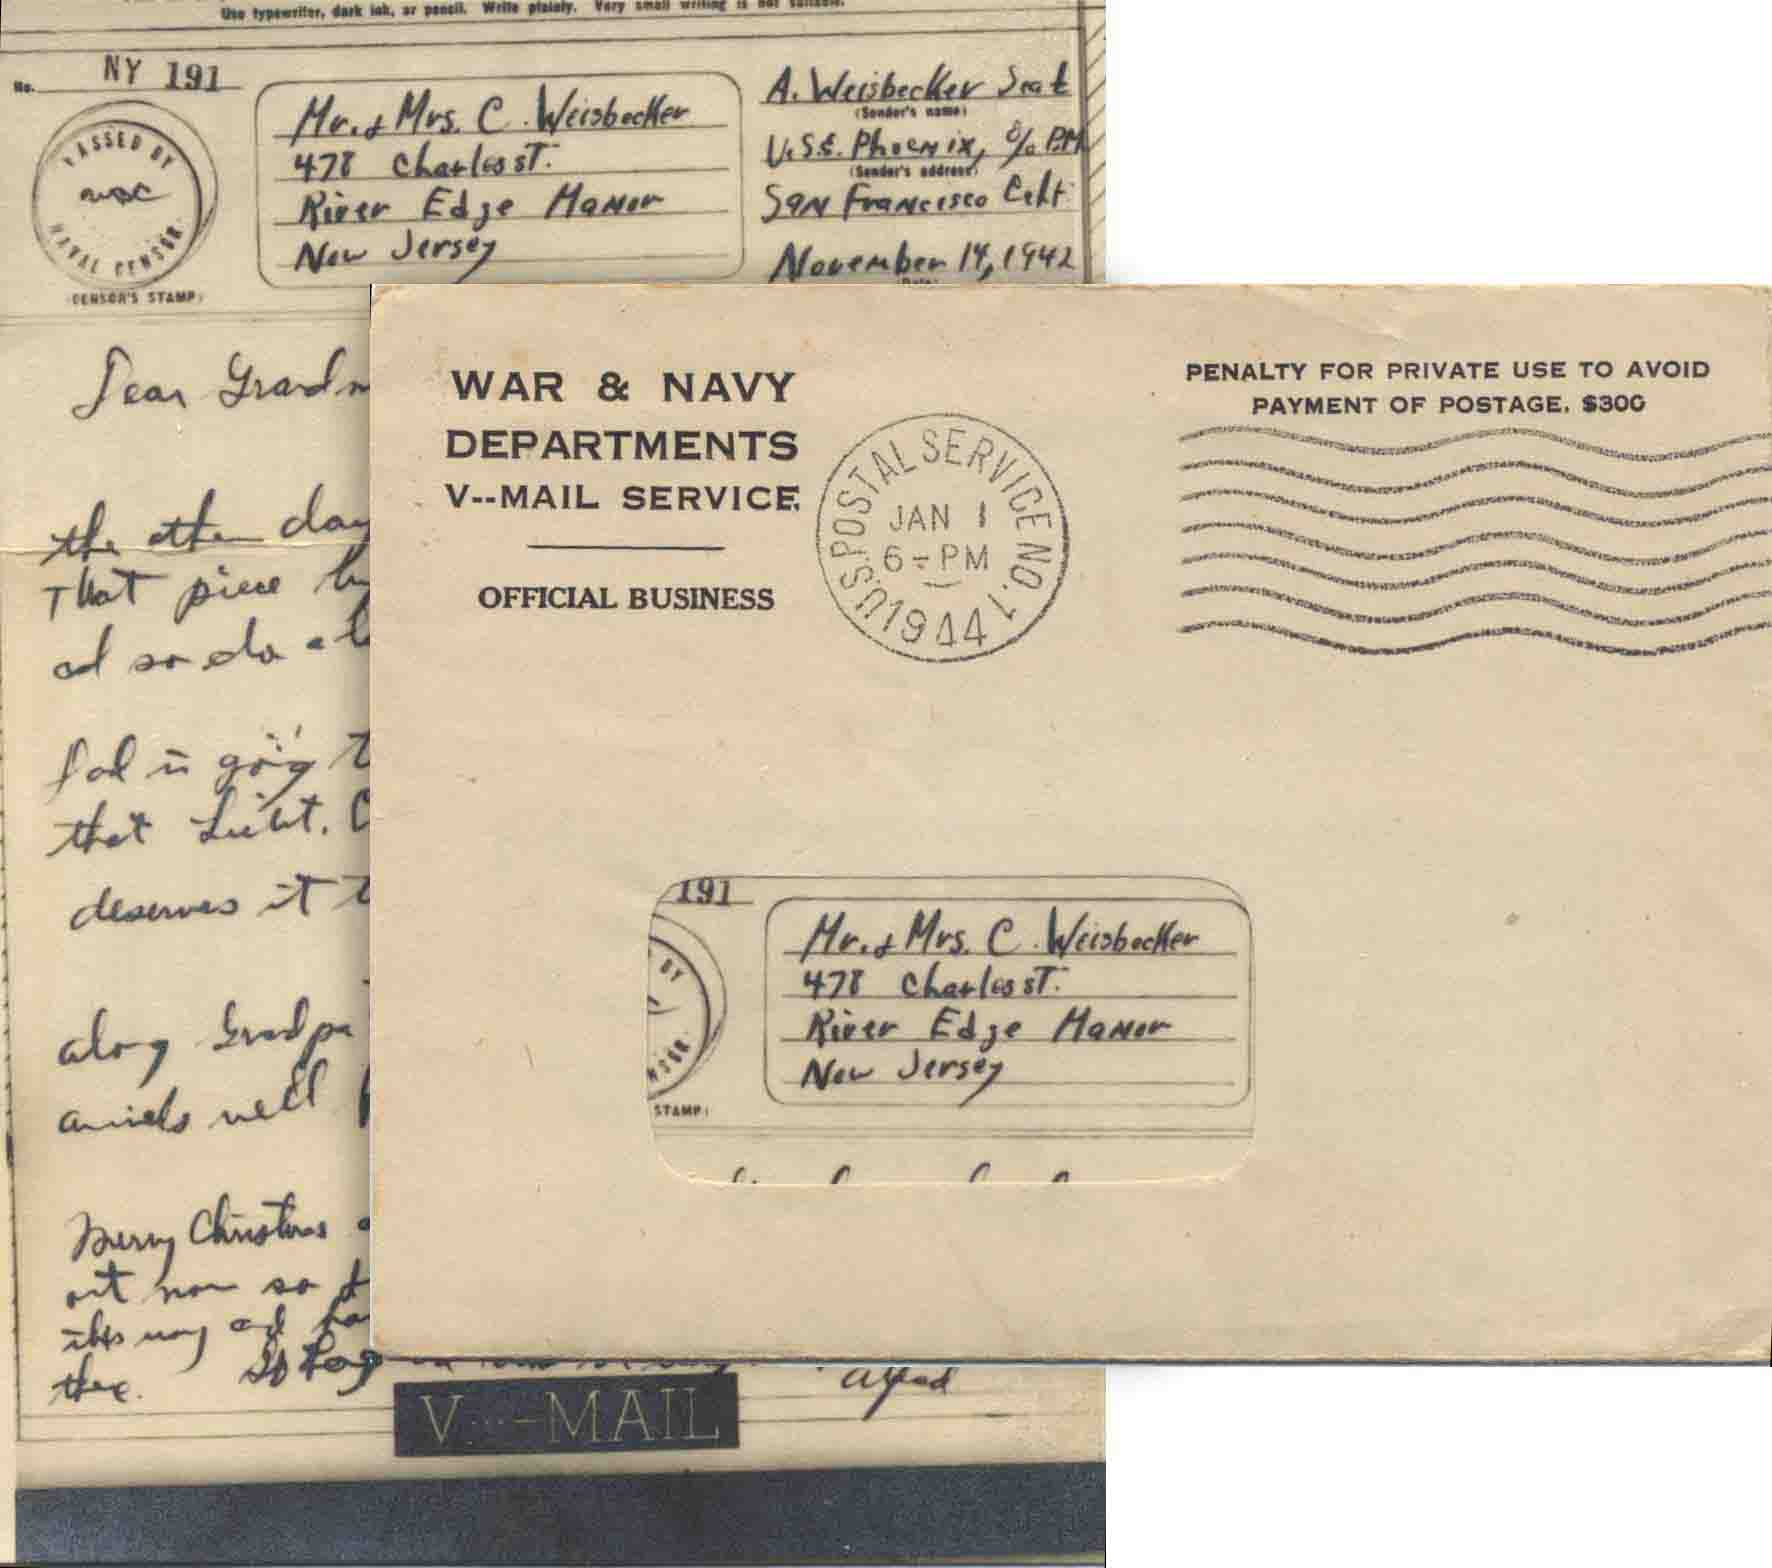 Use typewriter, dark ink, or pencil. Write plainly. Very small writing is not suitable.
No. NY 191
PASSED BY
NAVAL CENSOR
(CENSOR'S STAMP)
Mr. & Mrs. C. Weisbecker
478 Charles st.
River Edge Manor
New Jersey
A. Weisbecker Sea 1
(Sender's name)
U.S.S. Phoenix, c/o P.M
(Sender's address)
San Francisco Calif
November 14, 1942
Dear Grandm
the other day
That piece
ad so do
is going t
that Lieut. C
deserves it t
along Grandpa
well
Merry Christmas
out now so
this way and
there. So Long
Alfred
V---MAIL
WAR & NAVY
DEPARTMENTS
V--MAIL SERVICE
OFFICIAL BUSINESS
U.S. POSTAL SERVICE NO. 1
JAN 1
6-PM
1944
PENALTY FOR PRIVATE USE TO AVOID
PAYMENT OF POSTAGE, $300
191
BY
NSOR
STAMP)
Mr. & Mrs. C. Weisbecker
478 Charles st.
River Edge Manor
New Jersey